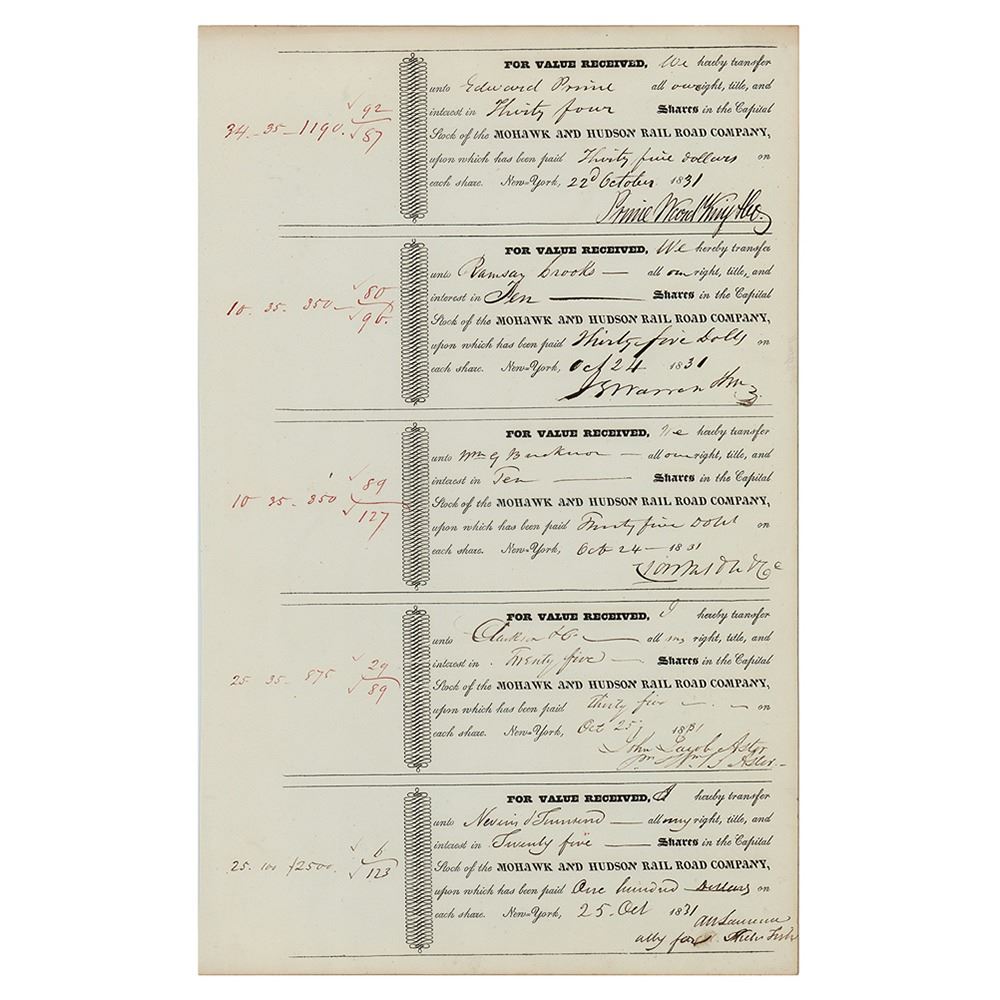 FOR VALUE RECEIVED, We hereby transfer
unto Edward Prime all our right, title, and
interest in Thirty four Shares in the Capital
34 - 35 - 1190. 92
87
Stock of the MOHAWK AND HUDSON RAIL ROAD COMPANY,
upon which has been paid Thirty five dollars on
each share. New-York, 22d October 1831
Prime Ward King &Co.
FOR VALUE RECEIVED, We hereby transfer
unto Ramsay Crooks — all our right, title, and
interest in Ten — Shares in the Capital
10 - 35 - 350 - 80
96.
Stock of the MOHAWK AND HUDSON RAIL ROAD COMPANY,
upon which has been paid Thirty five Dolls on
each share. New-York, Oct 24 1831
Warren
FOR VALUE RECEIVED, We hereby transfer
unto Wm G Bucknor — all our right, title, and
interest in Ten — Shares in the Capital
10 - 35 - 350 89
127
Stock of the MOHAWK AND HUDSON RAIL ROAD COMPANY,
upon which has been paid Thirty five Dolls on
each share. New-York, Oct 24 - 1831
FOR VALUE RECEIVED, I hereby transfer
unto Clarkson & Co — all my right, title, and
interest in Twenty five — Shares in the Capital
25 - 35 - 875 29
89
Stock of the MOHAWK AND HUDSON RAIL ROAD COMPANY,
upon which has been paid thirty five — on
each share. New-York, Oct 25 1831
John Jacob Astor
Wm Astor
FOR VALUE RECEIVED, I hereby transfer
unto Nevins & Townsend — all my right, title, and
interest in Twenty five — Shares in the Capital
25. 100 $2500. 6
123
Stock of the MOHAWK AND HUDSON RAIL ROAD COMPANY,
upon which has been paid One hundred Dollars on
each share. New-York, 25. Oct 1831
AW Lawrence
atty for